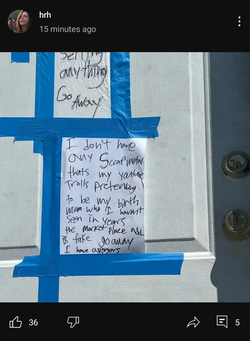 hrh
15 minutes ago
Selling
anything
Go Away
I don't have
any Scrap metal
thats my youtube
Trolls Pretending
to be my birth
mom who I havent
seen in years
the market place Ad
is fake go away
I have cameras
36
5